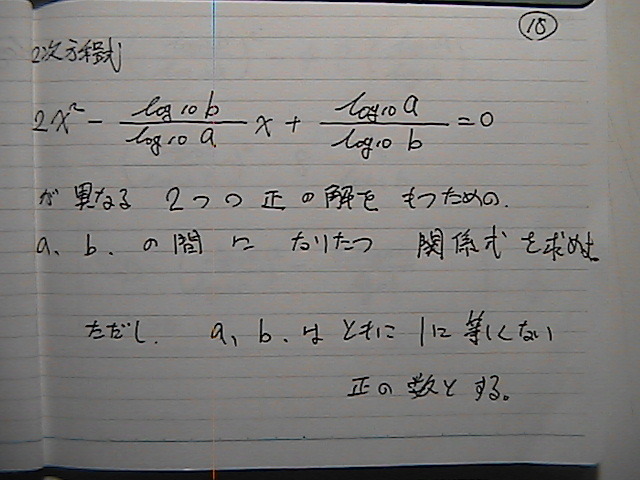 ⑱
2次方程式
2x² - \frac{log₁₀ b}{log₁₀ a} x + \frac{log₁₀ a}{log₁₀ b} = 0
が 異なる 2つの 正の解を もつための.
a, b, の間に なりたつ 関係式を求めよ
ただし. a, b, は ともに 1に 等しくない
正の数とする。